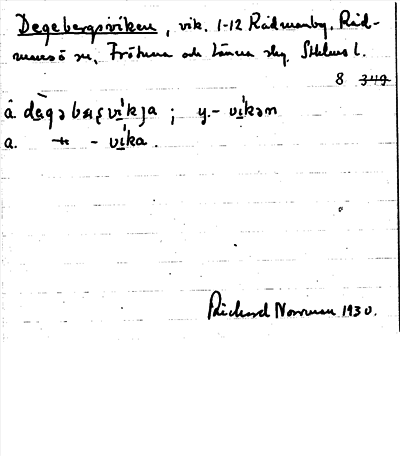 Degebergsviken, vik. 1-12 Rådmanby, Råd-
mansö sn, Frötuna och Länna skg, Sthlms l.
8 349
å dègəbær{vik}a ; y.- vikən
a. –"– - vika.
Richard Norrman 1930.